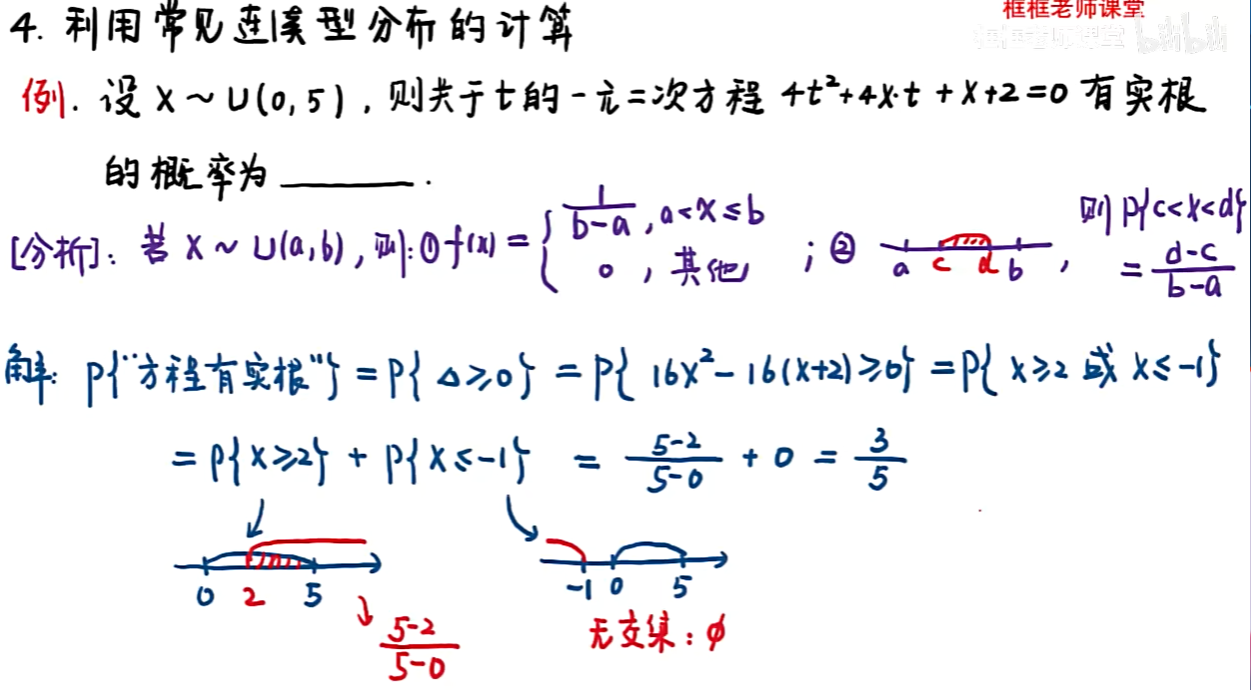 框框老师课堂
4. 利用常见连续型分布的计算
框框老师课堂 bilibili
例. 设 X ~ U(0, 5), 则关于t的一元二次方程 4t²+4X·t + X+2=0 有实根
的概率为 ______ .
[分析]: 若 X ~ U(a,b), 则: ① f(x) = { 1/(b-a), a<x≤b ; 0, 其他 ; ② a c d b, 则 P{c<X<d} = (d-c)/(b-a)
解: P{"方程有实根"} = P{ Δ≥0} = P{ 16X²-16(X+2)≥0} = P{ X≥2 或 X≤-1}
= P{X≥2} + P{X≤-1} = (5-2)/(5-0) + 0 = 3/5
0 2 5 -1 0 5
(5-2)/(5-0) 无交集: ϕ